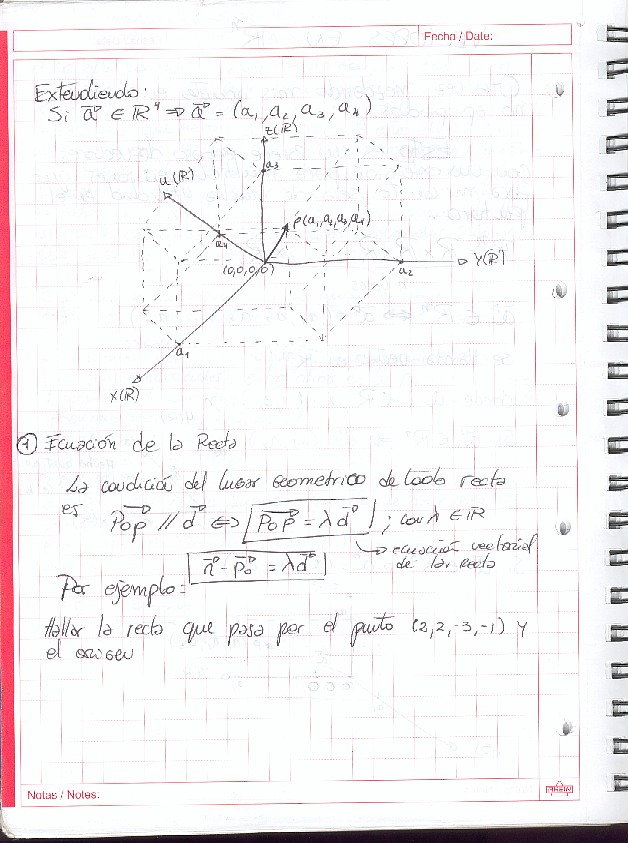 Fecha / Date:
Extendiendo:
Si a⃗ ∈ ℝ⁴ ⇒ a⃗ = (a₁, a₂, a₃, a₄)
Z(ℝ)
a₃
u(ℝ)
P(a₁, a₂, a₃, a₄)
a₄
(0,0,0,0)
a₂
Y(ℝ)
a₁
X(ℝ)
① Ecuación de la Recta
La condición del lugar geometrico de toda recta
es P₀P⃗ // d⃗ ⇔ P₀P⃗ = λd⃗ ; con λ ∈ ℝ
→ ecuación vectorial
de la recta
r⃗ - p₀⃗ = λd⃗
Por ejemplo:
Hallar la recta que pasa por el punto (2,2,-3,-1) y
el origen
Notas / Notes: